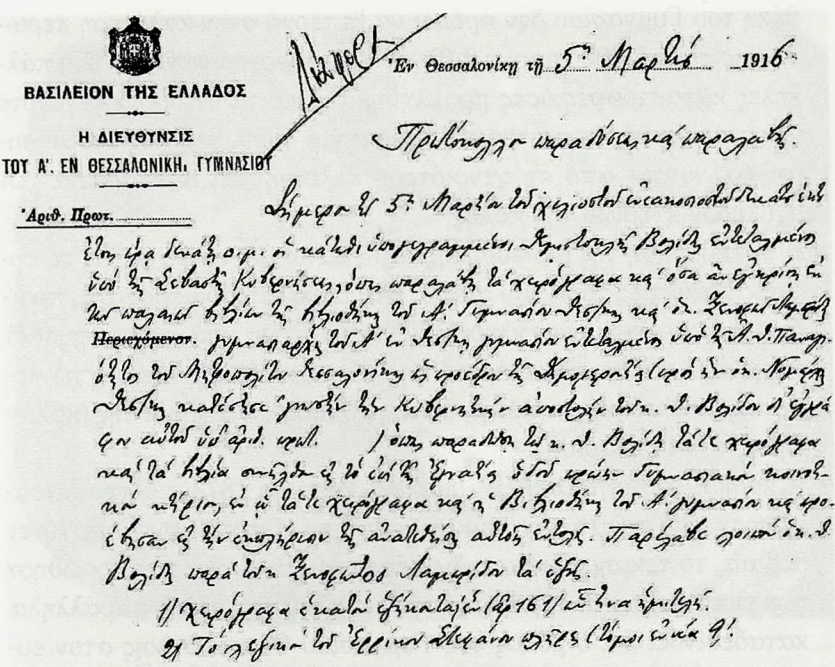 ΒΑΣΙΛΕΙΟΝ ΤΗΣ ΕΛΛΑΔΟΣ
Η ΔΙΕΥΘΥΝΣΙΣ
ΤΟΥ Α'. ΕΝ ΘΕΣΣΑΛΟΝΙΚΗι ΓΥΜΝΑΣΙΟΥ
Ἀριθ. Πρωτ.
Ἐν Θεσσαλονίκῃ τῇ 5ῃ Μαρτίου 1916
Πρωτόκολλον παραδόσεως καὶ παραλαβῆς.
Σήμερον τῇ 5ῃ Μαρτίου τοῦ χιλιοστοῦ ἐννεακοσιοστοῦ δεκάτου ἕκτου
ἔτους ὥρα δεκάτη π.μ. οἱ κάτωθι ὑπογεγραμμένοι Θεμιστοκλῆς Βολίδης ἐντεταλμένος
ὑπὸ τῆς Σεβαστῆς Κυβερνήσεως ὅπως παραλάβῃ τὰ χειρόγραφα καὶ ὅσα ἂν ἐγκρίνῃ ἐκ
τῶν παλαιῶν βιβλίων τῆς βιβλιοθήκης τοῦ Α'. Γυμνασίου Θεσ/νίκης καὶ ὁ κ.
Περιεχόμενον. γυμνασιάρχης τοῦ Α' ἐν Θεσ/νίκῃ γυμνασίου ἐντεταλμένος ὑπὸ τῆς Α. Θ. Παναγι-
ότητος τοῦ Μητροπολίτου Θεσσαλονίκης ὡς προέδρου τῆς Δημογεροντίας ὁ κ. Νομάρχης
Θεσ/νίκης κατέστησε γνωστὴν τὴν Κυβερνητικὴν ἀποστολὴν τοῦ κ. Θ. Βολίδου δι' ἐγγρά-
φου αὐτοῦ ὑπ' ἀριθ. πρωτ. ) ὅπως παραδώσῃ τῷ κ. Θ. Βολίδῃ τά τε χειρόγραφα
καὶ τὰ βιβλία συνῆλθον εἰς τὸ ἐπὶ τῆς Ἐγνατίας ὁδοῦ πρώην Γυμνασιακὸν κοινοτι-
κὸν κτίριον, ἐν ᾧ τά τε χειρόγραφα καὶ ἡ Βιβλιοθήκη τοῦ Α'. γυμνασίου καὶ προ-
έβησαν εἰς τὴν ἐκπλήρωσιν τῆς ἀνατεθείσης αὐτοῖς ἐντολῆς. Παρέλαβε λοιπὸν ὁ κ. Θ.
Βολίδης παρὰ τοῦ κ. Ξενοφῶντος τὰ ἑξῆς.
1) χειρόγραφα ἑκατὸν ἑξήκοντα ἓν (ἀρ 161) ὧν ἕνα ἡμιτελῆ.
2) Τὸ λεξικὸν τοῦ Ἑρρίκου Στεφάνου πλῆρες (τόμοι ἐννέα 9).